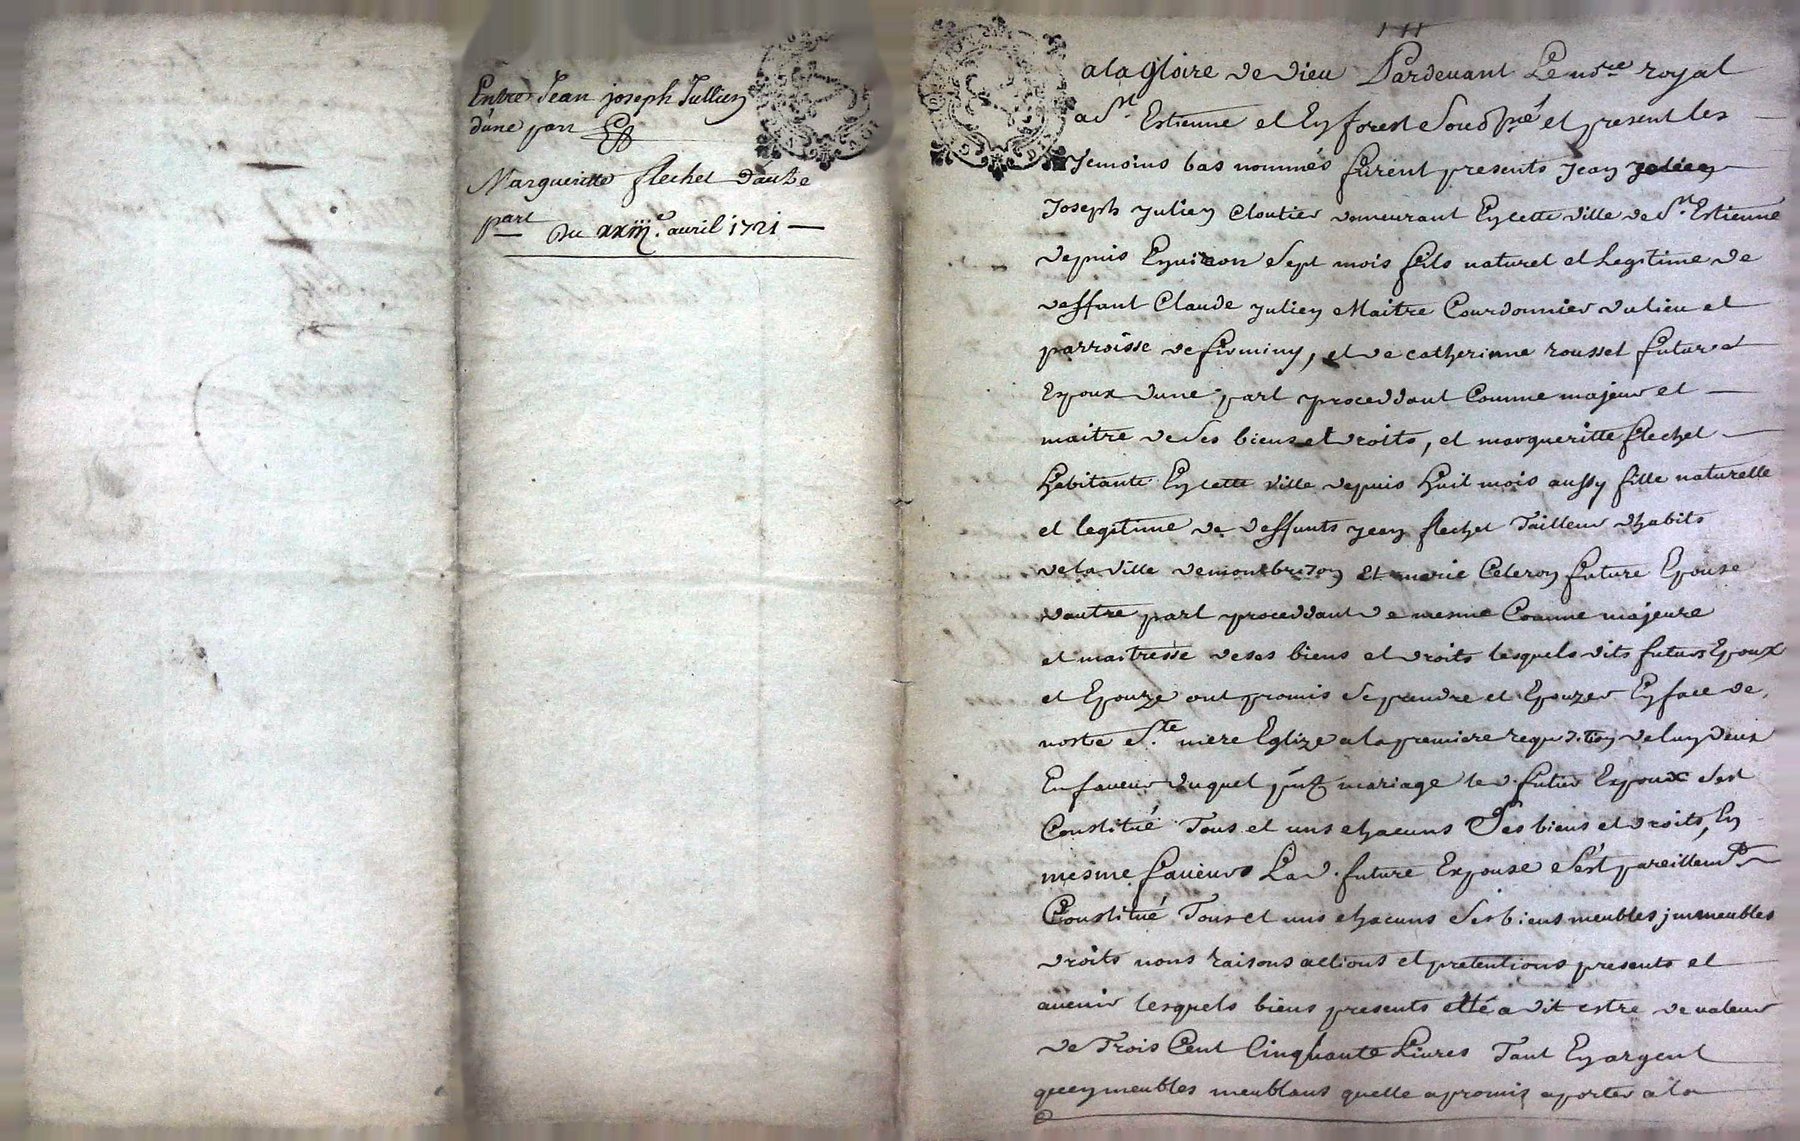 Entre Jean joseph Jullien
d'une part
Margueritte flechet dautre
part Du xxiij.e auril 1721
a la gloire de dieu Pardeuant Le no.re royal
a S.t Estienne et En forest Sousigné et present les
temoins bas nommés furent presents Jean
Joseph Julien Cloutier demeurant En cette ville de S.t Estienne
depuis Enuiron Sept mois fils naturel et Legitime de
deffunt Claude Julien Maitre Courdonnier du lieu et
parroisse de firminy, et de catherinne rousset futur
Espoux dune part proceddant Comme majeur et
maitre de Ses biens et droits, et margueritte flechet
habitante En cette ville depuis huit mois aussy fille naturelle
et legitime de deffunts Jean flechet Tailleur dhabits
de la ville de montbrison et marie Celeron future Epouse
dautre part proceddant de mesme Comme majeure
et maitresse de ses biens et droits lesquels dits futurs Epoux
et Epouze ont promis Se prendre et Epouzer En face de
nostre S.te mere Eglize a la premiere requisition de luy deux
En faueur duquel pnt mariage le d. futur Espoux s'est
Constitué Tous et uns chacuns Ses biens et droits, En
mesme faueurs La d. future Expouse s'est pareillem.t
Constitué Tous et uns chacuns Ses biens meubles jmmeubles
droits noms raisons actions et pretentions presents et
auenir lesquels biens presents elle a dit estre de valeur
de Trois Cent Cinquante Liures Tant En argent
qu'en meubles meublans quelle a promis aporter a la